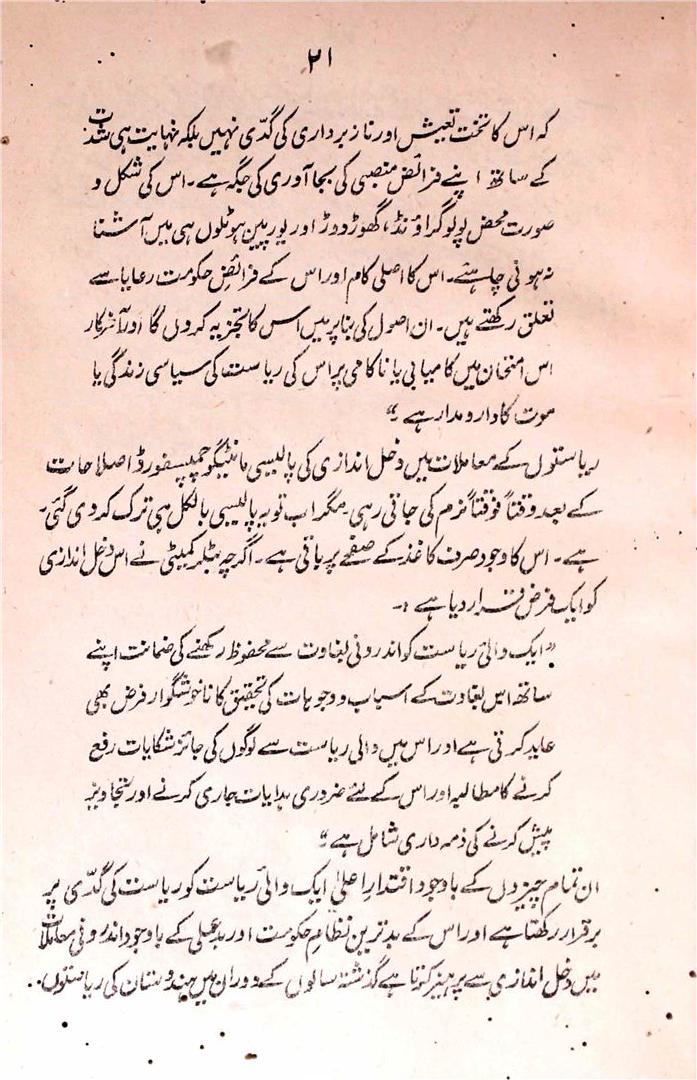 ۲۱
کہ اس کا تخت تعیش اور ناز برداری کی گدّی نہیں بلکہ نہایت ہی شدّت
کے ساتھ اپنے فرائض منصبی کی بجا آوری کی جگہ ہے۔ اس کی شکل و
صورت محض پولو گراؤنڈ، گھوڑ دوڑ اور یورپین ہوٹلوں ہی میں آشنا
نہ ہونی چاہئے۔ اس کا اصلی کام اور اس کے فرائض حکومت رعایا سے
تعلق رکھتے ہیں۔ ان اصول کی بنا پر میں اس کا تجزیہ کروں گا اور آخرکار
اس امتحان میں کامیابی یا ناکامی پر اس کی ریاست کی سیاسی زندگی یا
موت کا دارومدار ہے۔“
ریاستوں کے معاملات میں دخل اندازی کی پالیسی مانٹیگو چمپسفورڈ اصلاحات
کے بعد وقتاً فوقتاً نرم کی جاتی رہی۔ مگر اب تو یہ پالیسی بالکل ہی ترک کر دی گئی۔
ہے۔ اس کا وجود صرف کاغذ کے صفحے پر باقی ہے۔ اگرچہ بٹلر کمیٹی نے اس دخل اندازی
کو ایک فرض قرار دیا ہے :۔
”ایک والئ ریاست کو اندرونی بغاوت سے محفوظ رکھنے کی ضمانت اپنے
ساتھ اس بغاوت کے اسباب و وجوہات کی تحقیق کا ناخوشگوار فرض بھی
عاید کرتی ہے اور اس میں والی ریاست سے لوگوں کی جائز شکایات رفع
کرنے کا مطالبہ اور اس کے لئے ضروری ہدایات جاری کرنے اور تجاویز
پیش کرنے کی ذمہ داری شامل ہے“
ان تمام چیزوں کے باوجود اقتدار اعلیٰ ایک والئ ریاست کو ریاست کی گدّی پر
برقرار رکھتا ہے اور اس کے بدترین نظام حکومت اور بدعملی کے باوجود اندرونی معاملات
میں دخل اندازی سے پرہیز کرتا ہے گذشتہ سالوں کے دوران میں ہندوستان کی ریاستوں